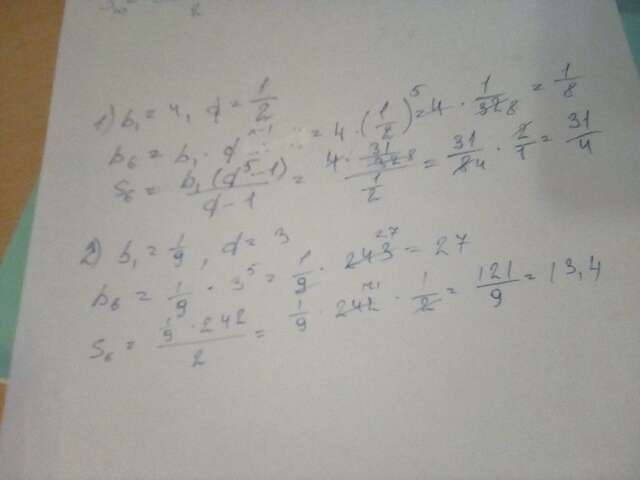 1) b₁ = 4, q = 1/2
b₆ = b₁ · q = 4 · (1/2)⁵ = 4 · 1/32 8 = 1/8
S₆ = b₁ (q⁵ - 1)/q - 1 = 4 · 31/32 8/1/2 = 31/8 4 · 2/1 = 31/4
2) b₁ = 1/9, q = 3
b₆ = 1/9 · 3⁵ = 1/9 · 243 27 = 27
S₆ = 1/9 · 242/2 = 1/9 · 242 · 1/2 = 121/9 = 13,4